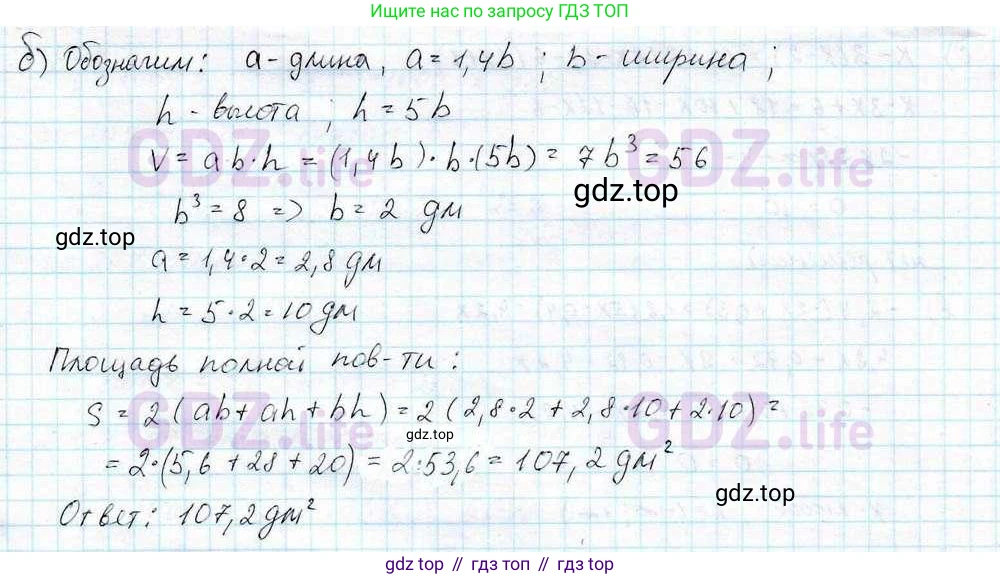 Ищите нас по запросу ГДЗ ТОП
б) Обозначим: a - длина, a = 1,4b ; b - ширина ;
h - высота ; h = 5b
V = a b · h = (1,4b) · b · (5b) = 7b³ = 56
gdz.top
b³ = 8 => b = 2 дм
gdz.top
a = 1,4 · 2 = 2,8 дм
h = 5 · 2 = 10 дм
Площадь полной пов-ти :
S = 2 (ab + ah + bh) = 2 (2,8 · 2 + 2,8 · 10 + 2 · 10) =
gdz.top
= 2 · (5,6 + 28 + 20) = 2 · 53,6 = 107,2 дм²
gdz.top
Ответ: 107,2 дм²
GDZ.life
GDZ.life
GDZ.life
GDZ.life
gdz.top // гдз.топ // gdz.top